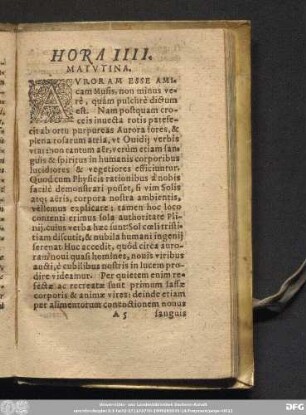 HORA IIII.
MATVTINA.
AVRORAM ESSE AMI-
cam Musis, non minus ve-
rè, quàm pulchrè dictum
est. Nam postquam cro-
ceis inuecta rotis patefe-
cit ab ortu purpureas Aurora fores, &
plena rosarum atria, vt Ouidij verbis
vtar: non tantum aër, verùm etiam san-
guis & spiritus in humanis corporibus
lucidiores & vegetiores efficiuntur.
Quod cum Physicis rationibus à nobis
facilè demonstrari posset, si vim Solis
atq; aëris, corpora nostra ambientis,
vellemus explicare: tamen hoc loco
contenti erimus sola authoritate Pli-
nij, cuius verba hæc sunt: Sol cœli tristi-
tiam discutit, & nubila humani ingenij
serenat. Huc accedit, quòd circa auro-
ram noui quasi homines, nouis viribus
aucti, è cubilibus nostris in lucem pro-
dire videamur. Per quietem enim re-
fectæ ac recreatæ sunt primum lassæ
corporis & animæ vires: deinde etiam
per alimentorum concoctionem nouus
A 5 sanguis